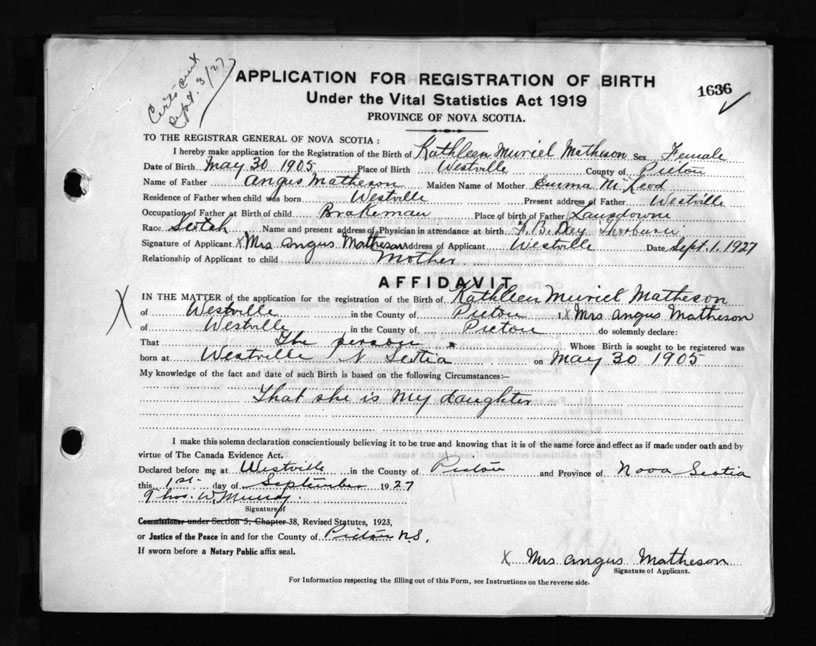 Sept. 3/27
APPLICATION FOR REGISTRATION OF BIRTH
1636
Under the Vital Statistics Act 1919
PROVINCE OF NOVA SCOTIA.
TO THE REGISTRAR GENERAL OF NOVA SCOTIA:
I hereby make application for the Registration of the Birth of Kathleen Muriel Matheson Sex Female
Date of Birth May 30 1905 Place of Birth Westville County of Pictou
Name of Father Angus Matheson Maiden Name of Mother Emma McLeod
Residence of Father when child was born Westville Present address of Father Westville
Occupation of Father at Birth of child Brakeman Place of birth of Father Lansdowne
Race Scotch Name and present address of Physician in attendance at birth B. Day Thorburn
Signature of Applicant X Mrs Angus Matheson Address of Applicant Westville Date Sept. 1, 1927
Relationship of Applicant to child Mother
AFFIDAVIT
X IN THE MATTER of the application for the registration of the Birth of Kathleen Muriel Matheson
of Westville in the County of Pictou I, X Mrs Angus Matheson
of Westville in the County of Pictou do solemnly declare:
That The person Whose Birth is sought to be registered was
born at Westville N Scotia on May 30 1905
My knowledge of the fact and date of such Birth is based on the following Circumstances:—
That she is my daughter
I make this solemn declaration conscientiously believing it to be true and knowing that it is of the same force and effect as if made under oath and by
virtue of The Canada Evidence Act.
Declared before me at Westville in the County of Pictou and Province of Nova Scotia
this 1st day of September 1927
Thos. W. Murray.
Signature of
Commissioner under Section 5, Chapter 38, Revised Statutes, 1923,
or Justice of the Peace in and for the County of Pictou N.S.
If sworn before a Notary Public affix seal.
X Mrs Angus Matheson
Signature of Applicant.
For Information respecting the filling out of this Form, see Instructions on the reverse side.